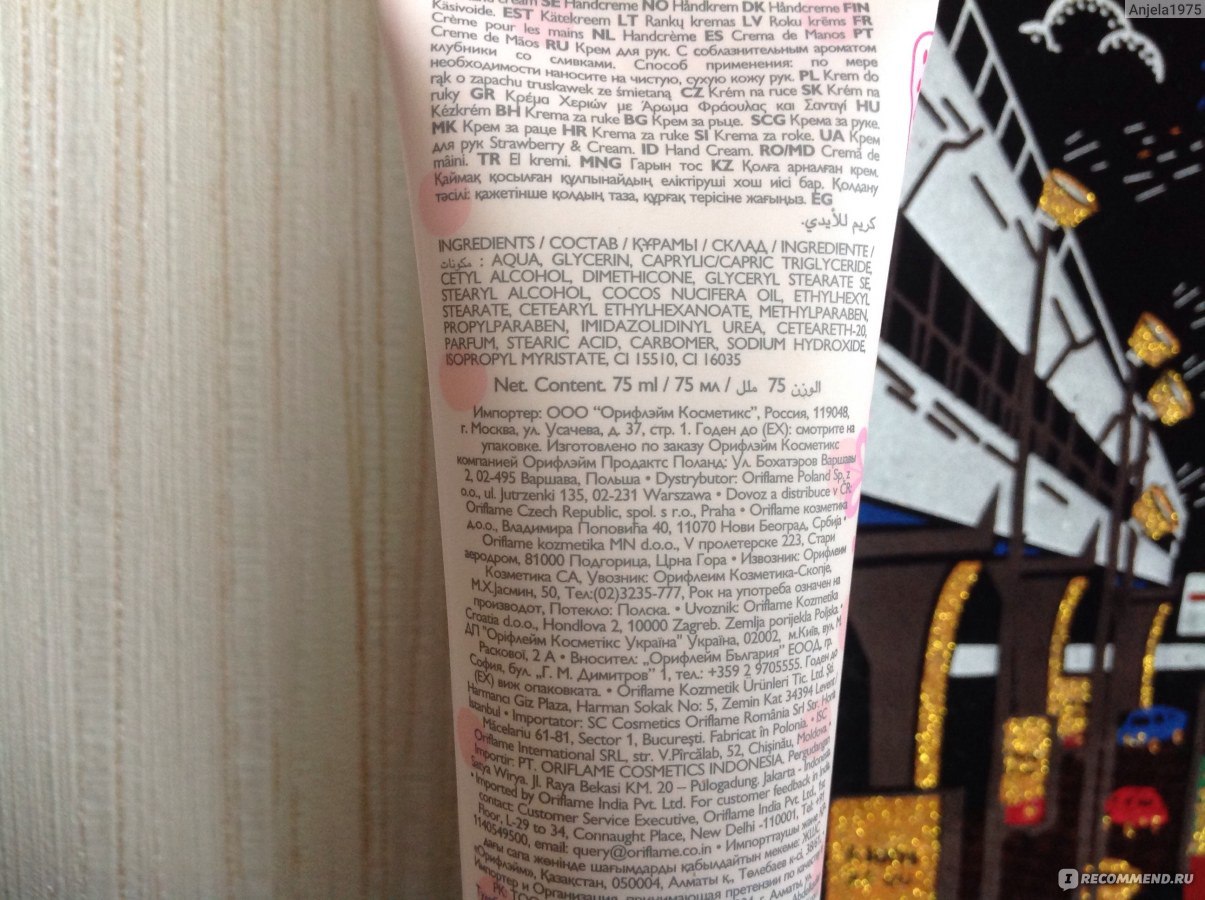 Anjela1975
cream SE Handcreme NO Håndkrem DK Håndcreme FIN
Käsivoide. EST Kätekreem LT Rankų kremas LV Roku krēms FR
Crème pour les mains NL Handcrème ES Crema de Manos PT
Creme de Mãos RU Крем для рук. С соблазнительным ароматом
клубники со сливками. Способ применения: по мере
необходимости наносите на чистую, сухую кожу рук. PL Krem do
rąk o zapachu truskawek ze śmietaną CZ Krém na ruce SK Krém na
ruky GR Κρέμα Χεριών με Άρωμα Φράουλας και Σαντιγί HU
Kézkrém BH Krema za ruke BG Крем за ръце. SCG Крема за руке.
MK Крем за раце HR Krema za ruke SI Krema za roke. UA Крем
для рук Strawberry & Cream. ID Hand Cream. RO/MD Cremă de
mâini. TR El kremi. MNG Гарын тос KZ Қолға арналған крем.
Қаймақ қосылған құлпынайдың еліктіруші хош иісі бар. Қолдану
тәсілі: қажетінше қолдың таза, құрғақ терісіне жағыңыз. EG
كريم للأيدي.
INGREDIENTS / СОСТАВ / ҚҰРАМЫ / СКЛАД / INGREDIENTE /
مكونات : AQUA, GLYCERIN, CAPRYLIC/CAPRIC TRIGLYCERIDE,
CETYL ALCOHOL, DIMETHICONE, GLYCERYL STEARATE SE,
STEARYL ALCOHOL, COCOS NUCIFERA OIL, ETHYLHEXYL
STEARATE, CETEARYL ETHYLHEXANOATE, METHYLPARABEN,
PROPYLPARABEN, IMIDAZOLIDINYL UREA, CETEARETH-20,
PARFUM, STEARIC ACID, CARBOMER, SODIUM HYDROXIDE,
ISOPROPYL MYRISTATE, CI 15510, CI 16035
Net. Content. 75 ml / 75 мл / الوزن 75 ملل
Импортер: ООО "Орифлэйм Косметикс", Россия, 119048,
г. Москва, ул. Усачева, д. 37, стр. 1. Годен до (EX): смотрите на
упаковке. Изготовлено по заказу Орифлэйм Косметикс
компанией Орифлэйм Продактс Поланд: Ул. Бохатэров Варшавы
2, 02-495 Варшава, Польша • Dystrybutor: Oriflame Poland Sp. z
o.o., ul. Jutrzenki 135, 02-231 Warszawa • Dovoz a distribuce v ČR:
Oriflame Czech Republic, spol. s r.o., Praha • Oriflame козметика
д.о.о., Владимира Поповића 40, 11070 Нови Београд, Србија •
Oriflame kozmetika MN d.o.o., V пролетерске 223, Стари
аеродром, 81000 Подгорица, Црна Гора • Извозник: Орифлеим
Козметика СА, Увозник: Орифлеим Козметика-Скопје,
М.Х.Јасмин, 50, Тел:(02)3235-777, Рок на употреба означен на
производот, Потекло: Полска. • Uvoznik: Oriflame Kozmetika
Croatia d.o.o., Hondlova 2, 10000 Zagreb. Zemlja porijekla Poljska •
ДП "Оріфлейм Косметікс Україна" Україна, 02002, м.Київ, вул. М.
Раскової, 2 А • Вносител: „Орифлейм България" ЕООД, гр.
София, бул. „Г. М. Димитров" 1, тел.: +359 2 9705555. Годен до
(EX) виж опаковката. • Oriflame Kozmetik Ürünleri Tic. Ltd. Şti.
Harmancı Giz Plaza, Harman Sokak No: 5, Zemin Kat 34394 Levent /
İstanbul • Importator: SC Cosmetics Oriflame România Srl Str. Horia
Măcelariu 61-81, Sector 1, București. Fabricat în Polonia. • ISC
Oriflame International SRL, str. V.Pîrcălab, 52, Chișinău, Moldova. •
Importir: PT. ORIFLAME COSMETICS INDONESIA. Pergudangan
Satya Wirya. Jl. Raya Bekasi KM. 20 – Pulogadung. Jakarta - Indonesia
• Imported by Oriflame India Pvt. Ltd. For customer feedback in India
contact: Customer Service Executive, Oriflame India Pvt. Ltd., 1st
Floor, L-29 to 34, Connaught Place, New Delhi -110001, Tel.
1140549500, email: query@oriflame.co.in • Импорттаушы және
дағы сапа жөнінде шағымдарды қабылдайтын мекеме: ЖШС
«Орифлэйм», Қазақстан, 050004, Алматы қ., Төлебаев к-сі, 38
Импортер и Организация, принимающая претензии по качеству
РК: ТОО Алматы, ул.
IRECOMMEND.RU